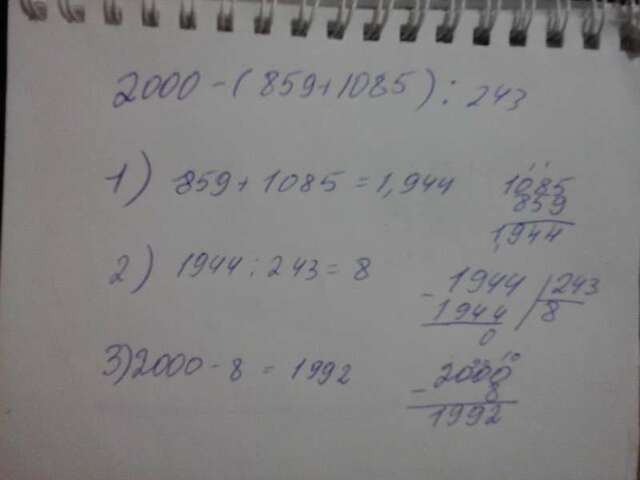 2000 - (859+1085) : 243
1) 859 + 1085 = 1,944
1085
859
1,944
2) 1944 : 243 = 8
- 1944 | 243
1944 | 8
0
3) 2000 - 8 = 1992
- 2000
8
1992